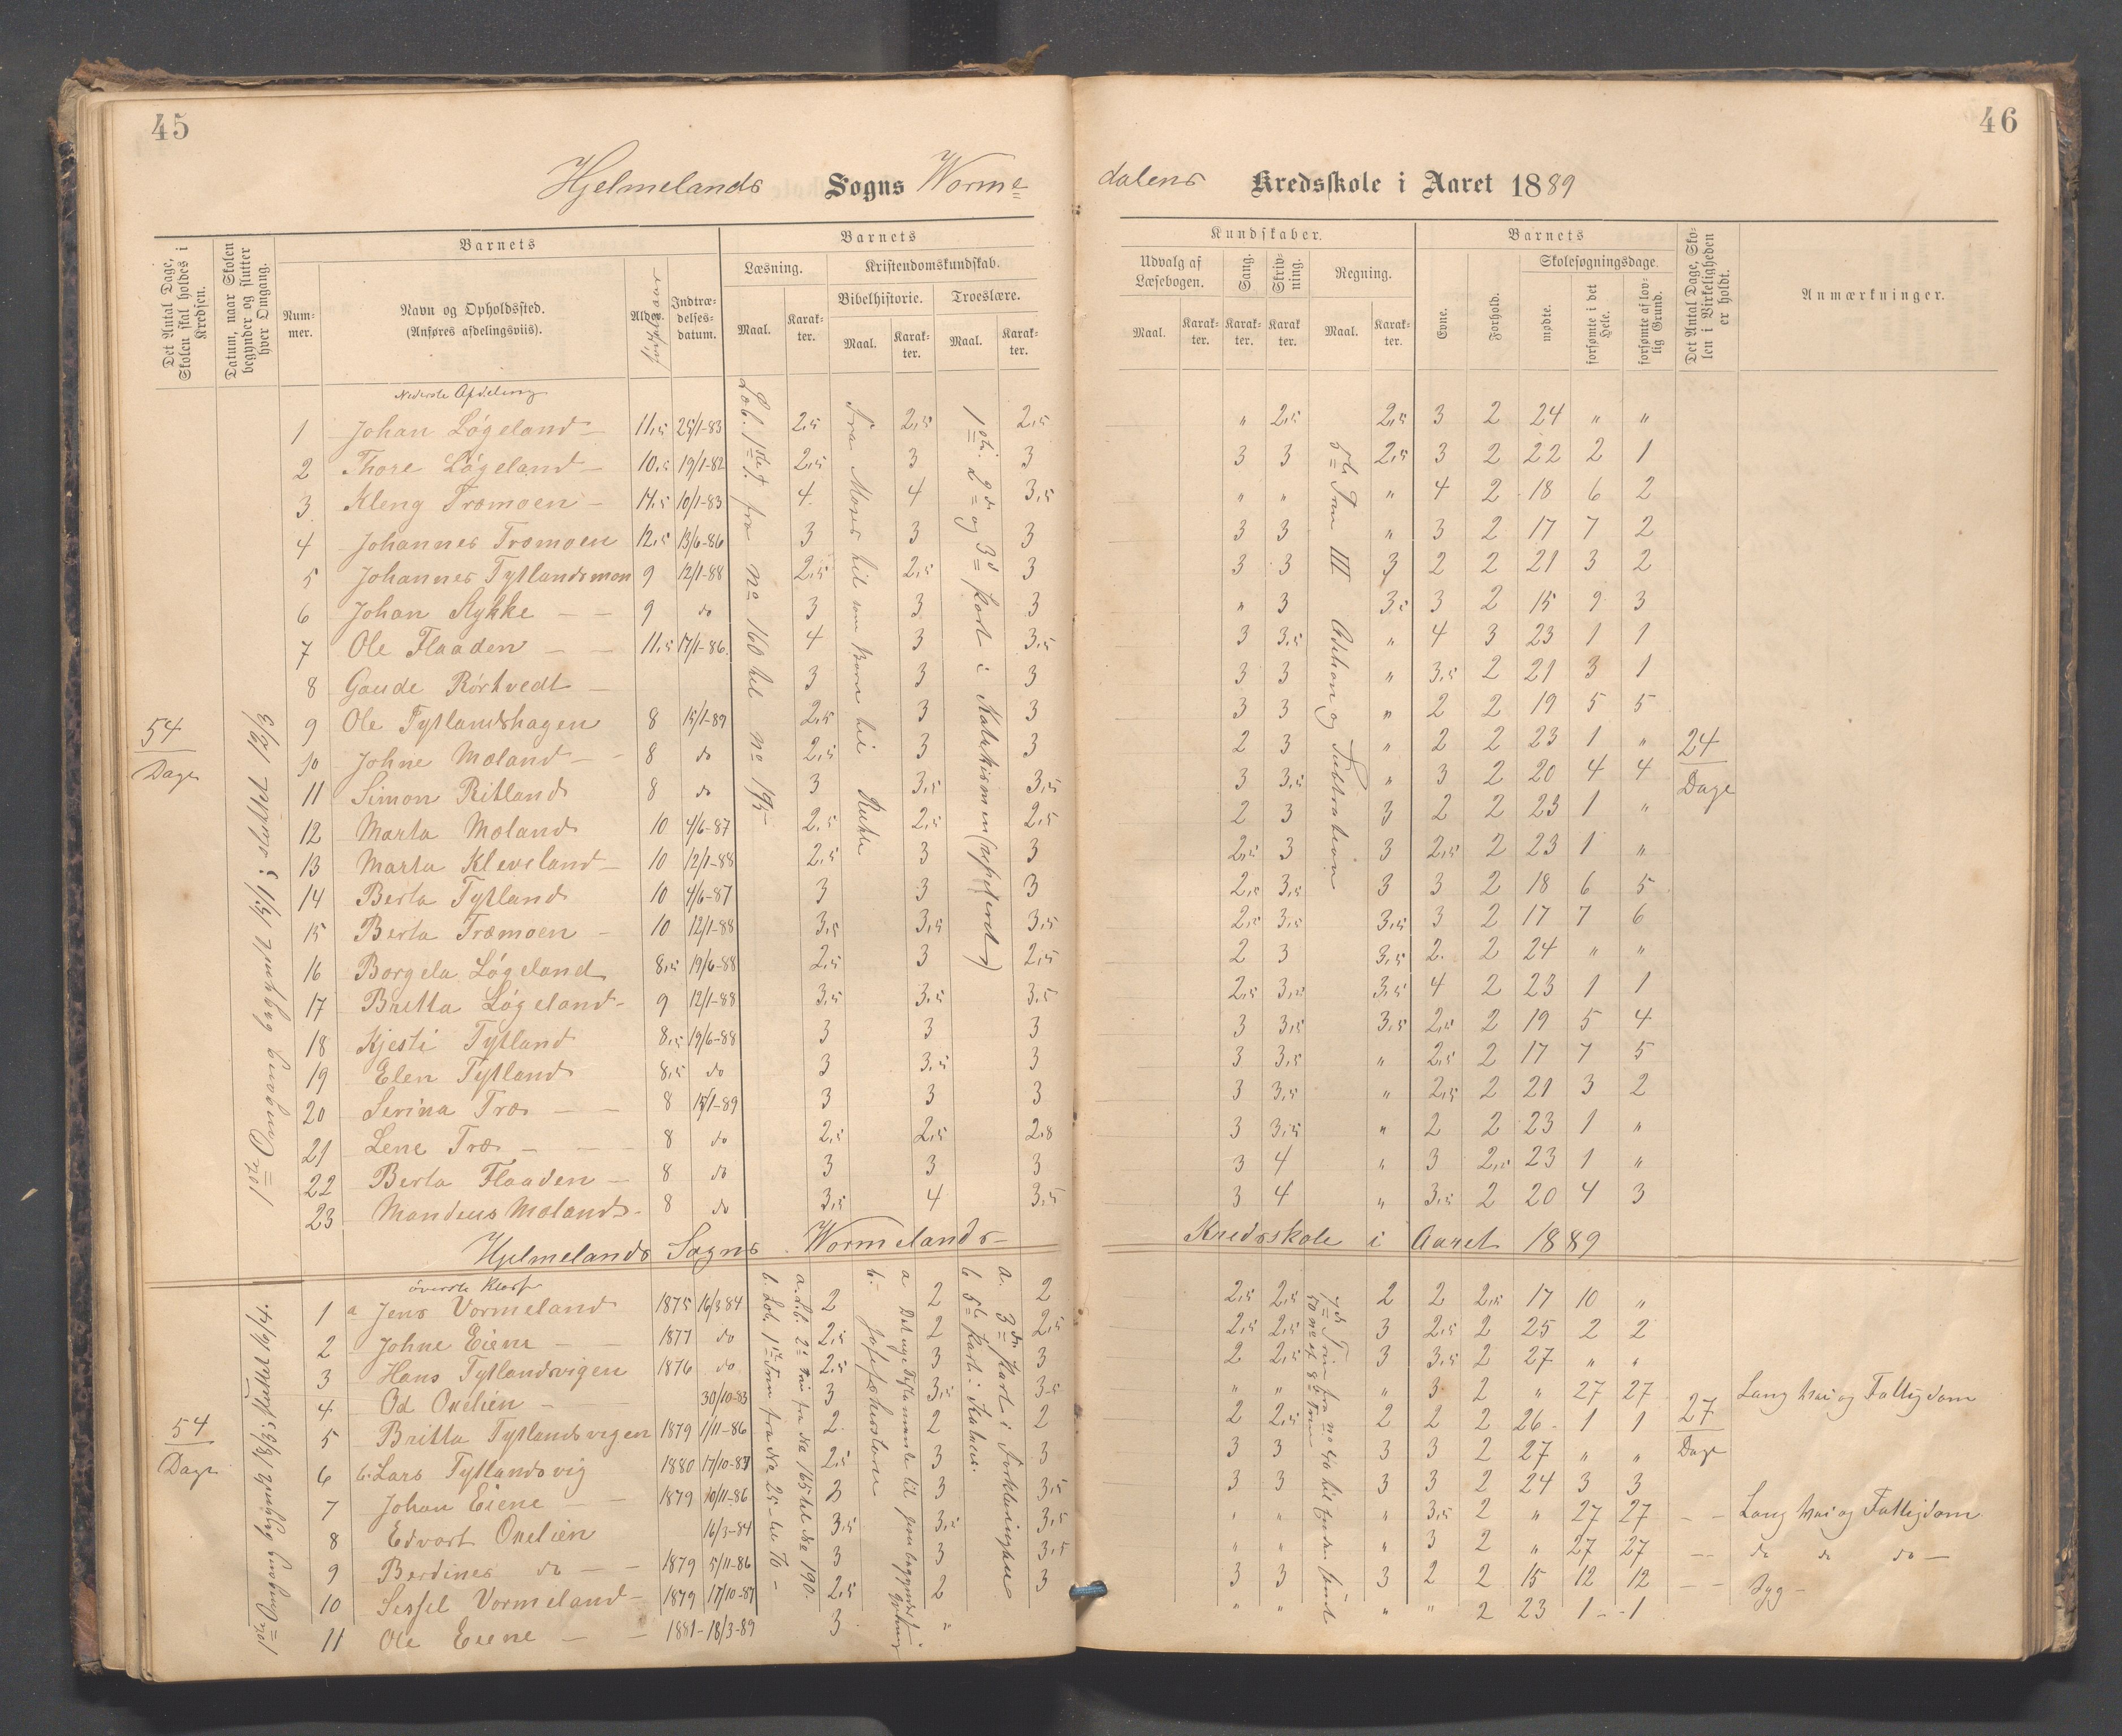 45
46
Hjelmelands Sogns Worme=
dalens Kredsskole i Aaret 1889
Det Antal Dage, Skolen skal holdes i Kredsen.
Datum, naar Skolen begynder og slutter hver Omgang.
Barnets
Num-mer.
Navn og Opholdssted.
(Anføres afdelingsviis).
Alder.
Indtræ-delses-datum.
Barnets
Læsning.
Maal.
Karak-ter.
Kristendomskundskab.
Bibelhistorie.
Maal.
Karak-ter.
Troeslære.
Maal.
Karak-ter.
Kundskaber.
Udvalg af Læsebogen.
Maal.
Karak-ter.
Sang.
Karak-ter.
Skriv-ning.
Karak-ter.
Regning.
Maal.
Karak-ter.
Barnets
Evne.
Forhold.
Skolesøgningsdage.
mødte.
forsømte i det Hele.
forsømte af lov-lig Grund.
Det Antal Dage, Sko-len i Virkeligheden er holdt.
Anmærkninger.
54
Dage
1ste Omgang begyndt 15/1; sluttet 12/3
Nederste Afdeling
Læb. 1ste T. fra No 160 til No 195
Fra Moses til som Barn til Rukk
1ste 2den og 3d Part i Katekismen (repeteret)
5te Trin III Adition og Subtraktion
1 Johan Løgeland 11,5 25/1-83 2,5 2,5 2,5 " 2,5 2,5 3 2 24 " "
2 Thore Løgeland 10,5 19/1-82 2,5 3 3 3 3 2,5 3 2 22 2 1
3 Kleng Træmoen 11,5 10/1-83 4 4 3,5 " " " 4 2 18 6 2
4 Johannes Træmoen 12,5 13/6-86 3 3 3 3 3 " 3 2 17 7 2
5 Johannes Tytlandsmoen 9 12/1-88 2,5 2,5 3 3 3 3 2 2 21 3 2
6 Johan Stykke 9 do 3 3 3 " 3 3,5 3 2 15 9 3
7 Ole Flaaden 11,5 17/1-86 4 3 3,5 3 3,5 " 4 3 23 1 1
8 Gaude Rørtvedt 3 3 3 3 3 " 3,5 2 21 3 1
9 Ole Tytlandshagen 8 15/1-89 2,5 3 3 3 3 " 2 2 19 5 5
10 Johne Moland 8 do 2,5 3 3 2 3 " 2 2 23 1 "
24
Dage
11 Simon Ritland 8 do 3 3,5 3,5 3 3,5 " 3 2 20 4 4
12 Marta Moland 10 4/6-87 2,5 2,5 2,5 2 3 3 2 2 23 1 "
13 Marta Kleveland 10 12/1-88 2,5 3 3 2,5 3 3 2,5 2 23 1 "
14 Berta Tytland 10 4/6-87 3 3 3 2,5 3,5 3 3 2 18 6 5
15 Berta Træmoen 10 12/1-88 3,5 3,5 3,5 2,5 3,5 3,5 3 2 17 7 6
16 Borgela Løgeland 8,5 19/6-88 2,5 3 2,5 2 3 3,5 2 2 24 " "
17 Britta Løgeland 9 12/1-88 3,5 3,5 3,5 2,5 3,5 3,5 4 2 23 1 1
18 Kjesti Tytland 8,5 19/6-88 3 3 3 3 3,5 3,5 2,5 2 19 5 4
19 Elen Tytland 8,5 do 3 3,5 3 3 3,5 " 2,5 2 17 7 5
20 Serina Træ 8 15/1-89 3 3 3 3 3,5 " 2,5 2 21 3 2
21 Lene Træ 8 do 2,5 2,5 2,8 3 3,5 " 2 2 23 1 "
22 Berta Flaaden 8 do 3 3 3 3 4 " 3 2,5 23 1 "
23 Mandeus Moland 8 do 3,5 4 3,5 3 4 " 3,5 2 20 4 3
Hjelmelands Sogns Wormelands Kredsskole i Aaret 1889
øverste Klasse
54
Dage
1ste Omgang begyndt 18/3; sluttet 16/4.
b. Læb. 1ste Trin fra No 25 til 70
a. Læb. 2de Trin fra No 165 til No 190
a Det nye Testamente til
a. 3die Part i Forklaringen
b 5te Part i Katec.
1 a Jens Vormeland 1875 16/3 84 2 2 2 2,5 2,5 2 2 2,5 17 10 "
2 Johne Eiene 1877 do 2,5 2 2,5 2,5 2,5 3 2,5 2 25 2 2
3 Hans Tytlandsvigen 1876 do 2,5 3 3 2 2,5 3 3,5 2 27 " "
4 Od Oxelien 30/10-83 3 3,5 3,5 " " " 3 2 " 27 27 Lang Vei og Fattigdom
5 Britta Tytlandsvigen 1879 1/11-86 2 2 2 2 2,5 2 2 2 26 1 1
27
Dage
6 b. Lars Tytlandsvig 1880 17/10-87 2,5 3 3 3 3 3 3 2 27 " "
7 Johan Eiene 1879 10/11-86 3 3 3,5 3 3 3 3 2 24 3 3
8 Edvart Oxelien 16/3-84 3,5 3,5 3,5 " " " 3,5 2 " 27 27 Lang Vei og Fattigdom
9 Berdines do 1879 5/11-86 3 3 3,5 " " " 3 2 " 27 27 do do do
10 Sessel Vormeland 1879 17/10-87 2,5 2 3 3 3 3 2 2 15 12 12 Syg
11 Ole Eiene 1881 18/3-89 3 " " " " " 2 23 1 1